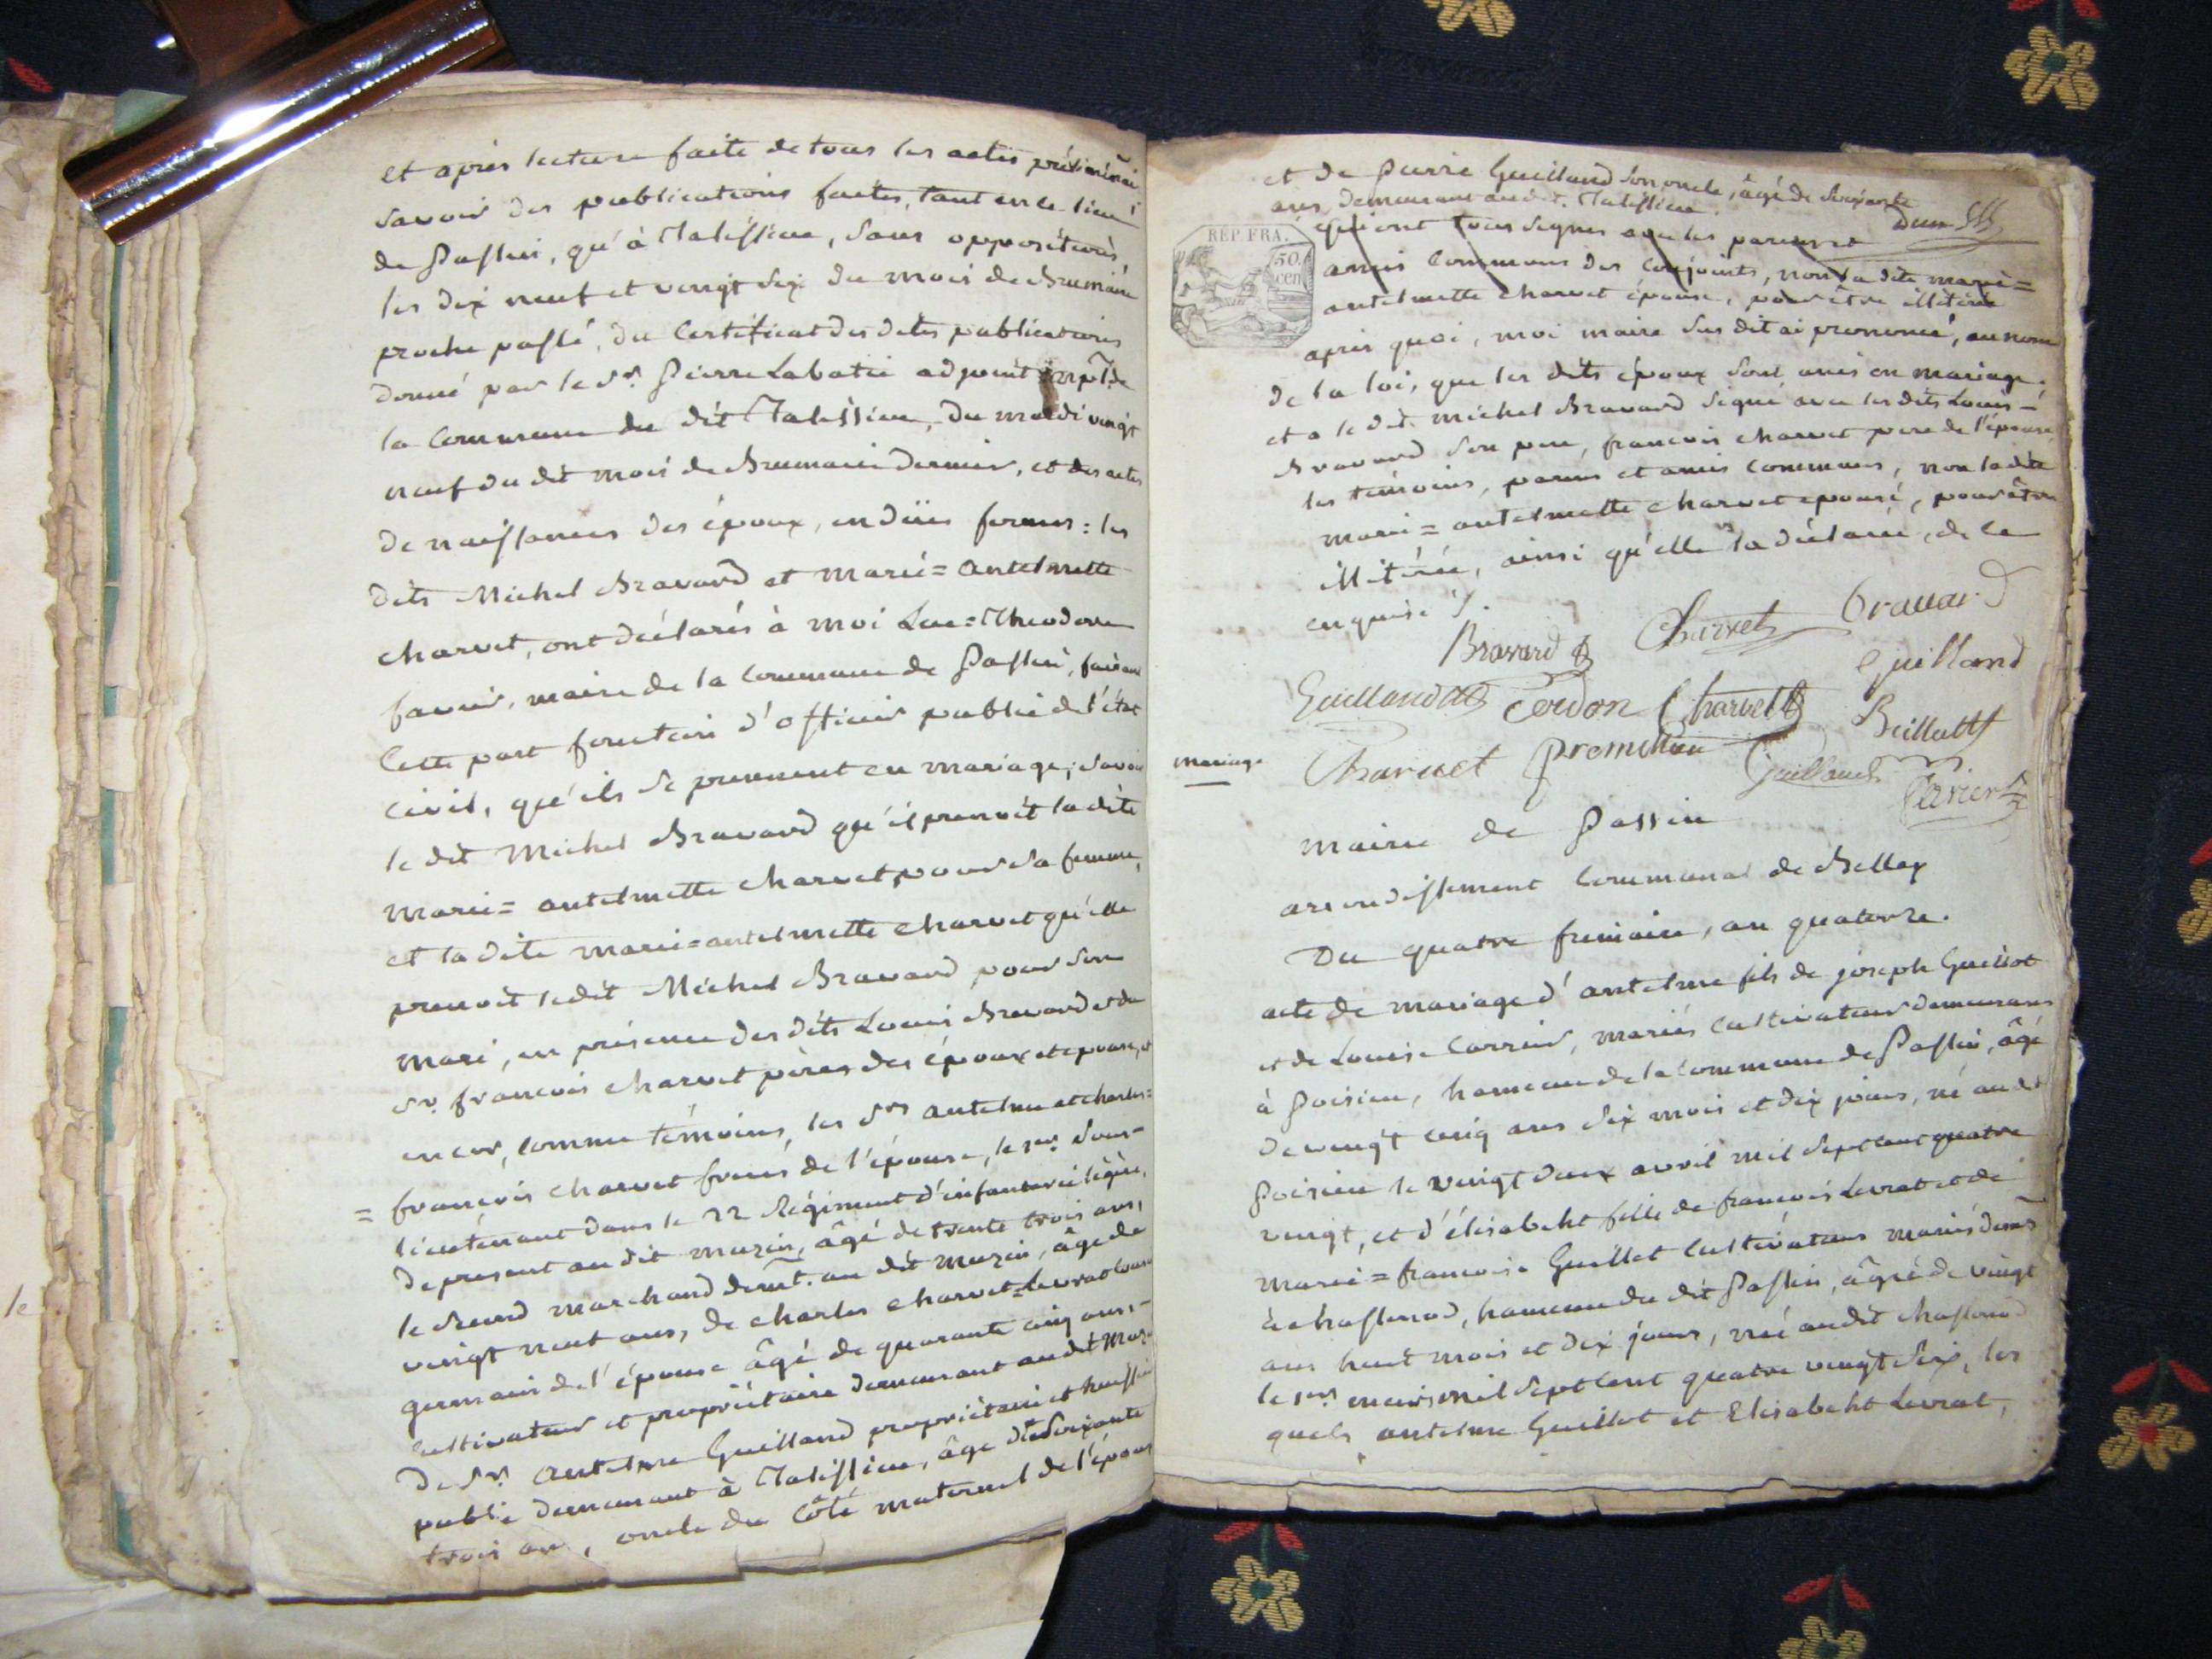 et après lecture faite de tous les actes préliminai
savoir des publications faites, tant en ce lieu
de Passin, qu'à Talissieu, sans oppositions,
les dix neuf et vingt six du mois de Brumaire
proche passé, du certificat des dites publications
donné par le Sr. Pierre Labatie adjoint
la Commune du dit Talissieu, du mardi vingt
neuf du dit mois de Brumaire dernier, et des actes
de naissances des époux, en dües formes : les
dits Michel Bravard et marie = antelmette
charvet, ont déclarés à moi Luc = Theodore
favier, maire de la Commune de Passin, faisant
Cette part fonctions d'officier public de l'état
Civil, qu'ils se prennent en mariage, savoir
le dit Michel Bravard qu'il prenoit la dite
marie = antelmette charvet, pour sa femme,
et la dite marie = antelmette charvet qu'elle
prenoit le dit Michel Bravard pour son
mari, en présence des dits Louis Bravard et du
Sr. francois charvet pères des époux et épouse, et
encor, comme témoins, les Srs antelme et charles =
= françois charvet freres de l'épouse, le 1er. Sous-
lieutenant dans le 22 Régiment d'infanterie légère,
de present au dit muzin, âgé de trente trois ans,
le second marchand demt. au dit muzin, âgé de
vingt neuf ans, de charles charvet = Levrat cousin
germain de l'épouse âgé de quarante cinq ans, -
cultivateur et propriétaire demeurant au dit Muz
de Sr. antelme Guilland propriétaire et huissier
public demeurant à Talissieu, âgé de soixante
trois ans, oncle du côté maternel de l'époux
le
et de pierre Guilland son oncle, âgé de soixante
ans, demeurant au d. Talissieu.
REP. FRA.
50
cen
qui ont tous signés avec les parens et
amis communs des conjoints, non la dite marie =
antelmette charvet épouse, pour être illitérée
après quoi, moi maire sus dit ai prononcé, au nom
de la loi, que les dits époux sont unis en mariage.
et a le dit michel Bravard signé avec les dits Louis -
Bravard son pere, francois charvet pere de l'épouse,
les témoins, parens et amis communs, non la dite
marie = antelmette charvet epouse, pour être
illitérée, ainsi qu'elle l'a déclaré, de ce
enquise
Bravard Charvet bravard
Guilland Cordon Charvet guilland
Charvet premillieu Guilland Beillutt
favier
mariage
mairie de Passin
arrondissement communal de Belley
Du quatre frimaire, an quatorze.
acte de mariage d'antelme fils de joseph Guillot
et de Louise Carrier, mariés cultivateurs demeurans
à Poisieu, hameau de la commune de Passin, âgé
de vingt cinq ans six mois et dix jours, né au dit
Poisieu le vingt deux avril mil sept cent quatre
vingt, et d'élisabeht fille de francois Levrat et de
marie = francoise Guillot cultivateurs mariés demt
à chassonod, hameau du dit Passin, âgée de vingt
ans huit mois et dix jours, née au dit chassonod
le 1er. mars mil sept cent quatre vingt six, les
quels antelme Guillot et Elisabeht Levrat,